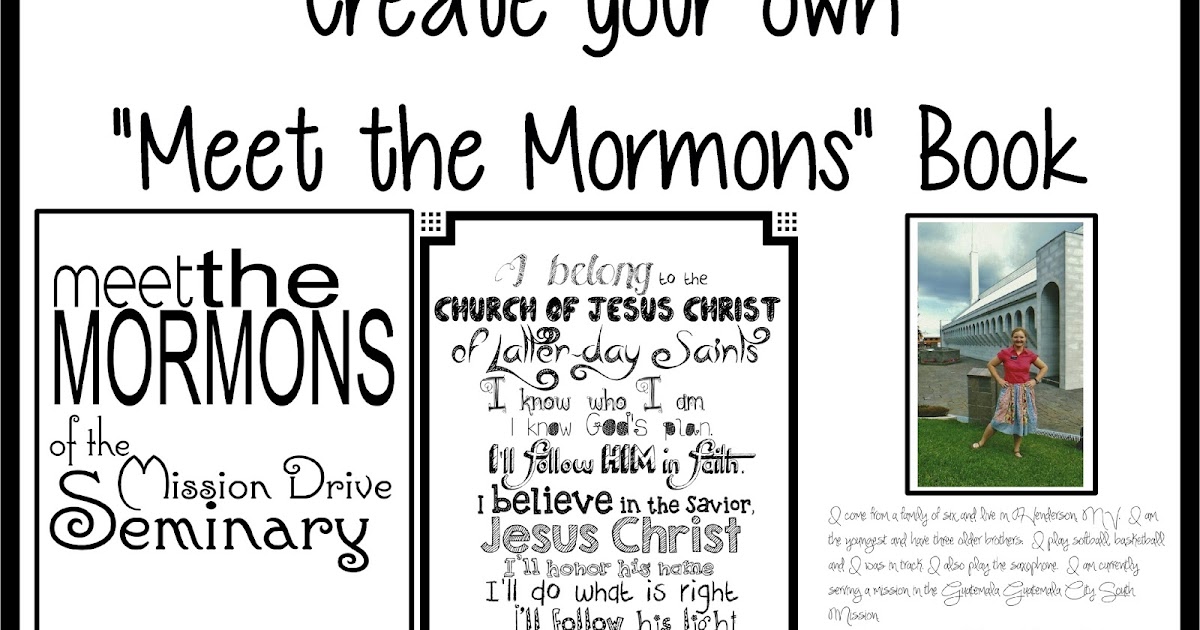 Create your own
"Meet the Mormons" Book
meet the
MORMONS
of the
Mission Drive
Seminary
I belong to the
CHURCH OF JESUS CHRIST
of Latter-day Saints
I know who I am
I know God's plan.
I'll follow HIM in faith.
I believe in the Savior,
Jesus Christ
I'll honor his name
I'll do what is right
I'll follow his light
I come from a family of six and live in Henderson, NV. I am
the youngest and have three older brothers. I play softball, basketball
and I was in track. I also play the saxophone. I am currently
serving a mission in the Guatemala Guatemala City South
Mission